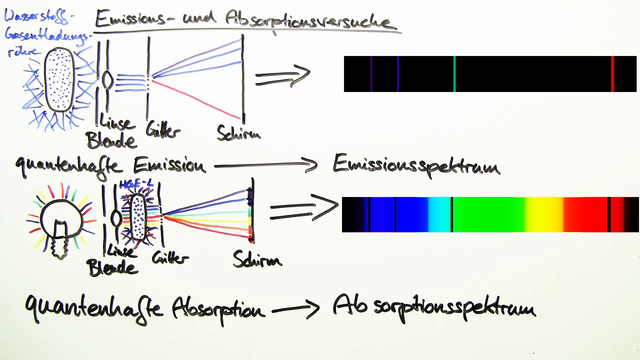 Emissions- und Absorptionsversuche
Wasserstoff-
Gasentladungs-
röhre
Linse
Blende
Gitter
Schirm
quantenhafte Emission
Emissionsspektrum
Linse
Blende
Gitter
Schirm
quantenhafte Absorption
Absorptionsspektrum